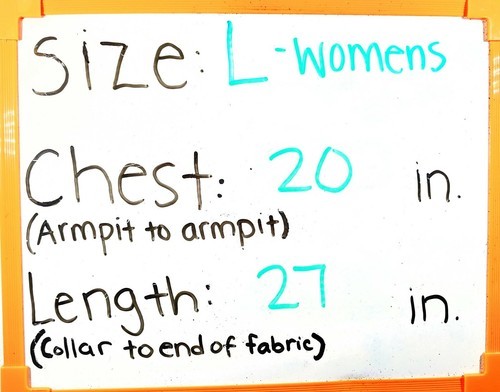 Size: L-womens
Chest: 20 in.
(Armpit to armpit)
Length: 27 in.
(Collar to end of fabric)